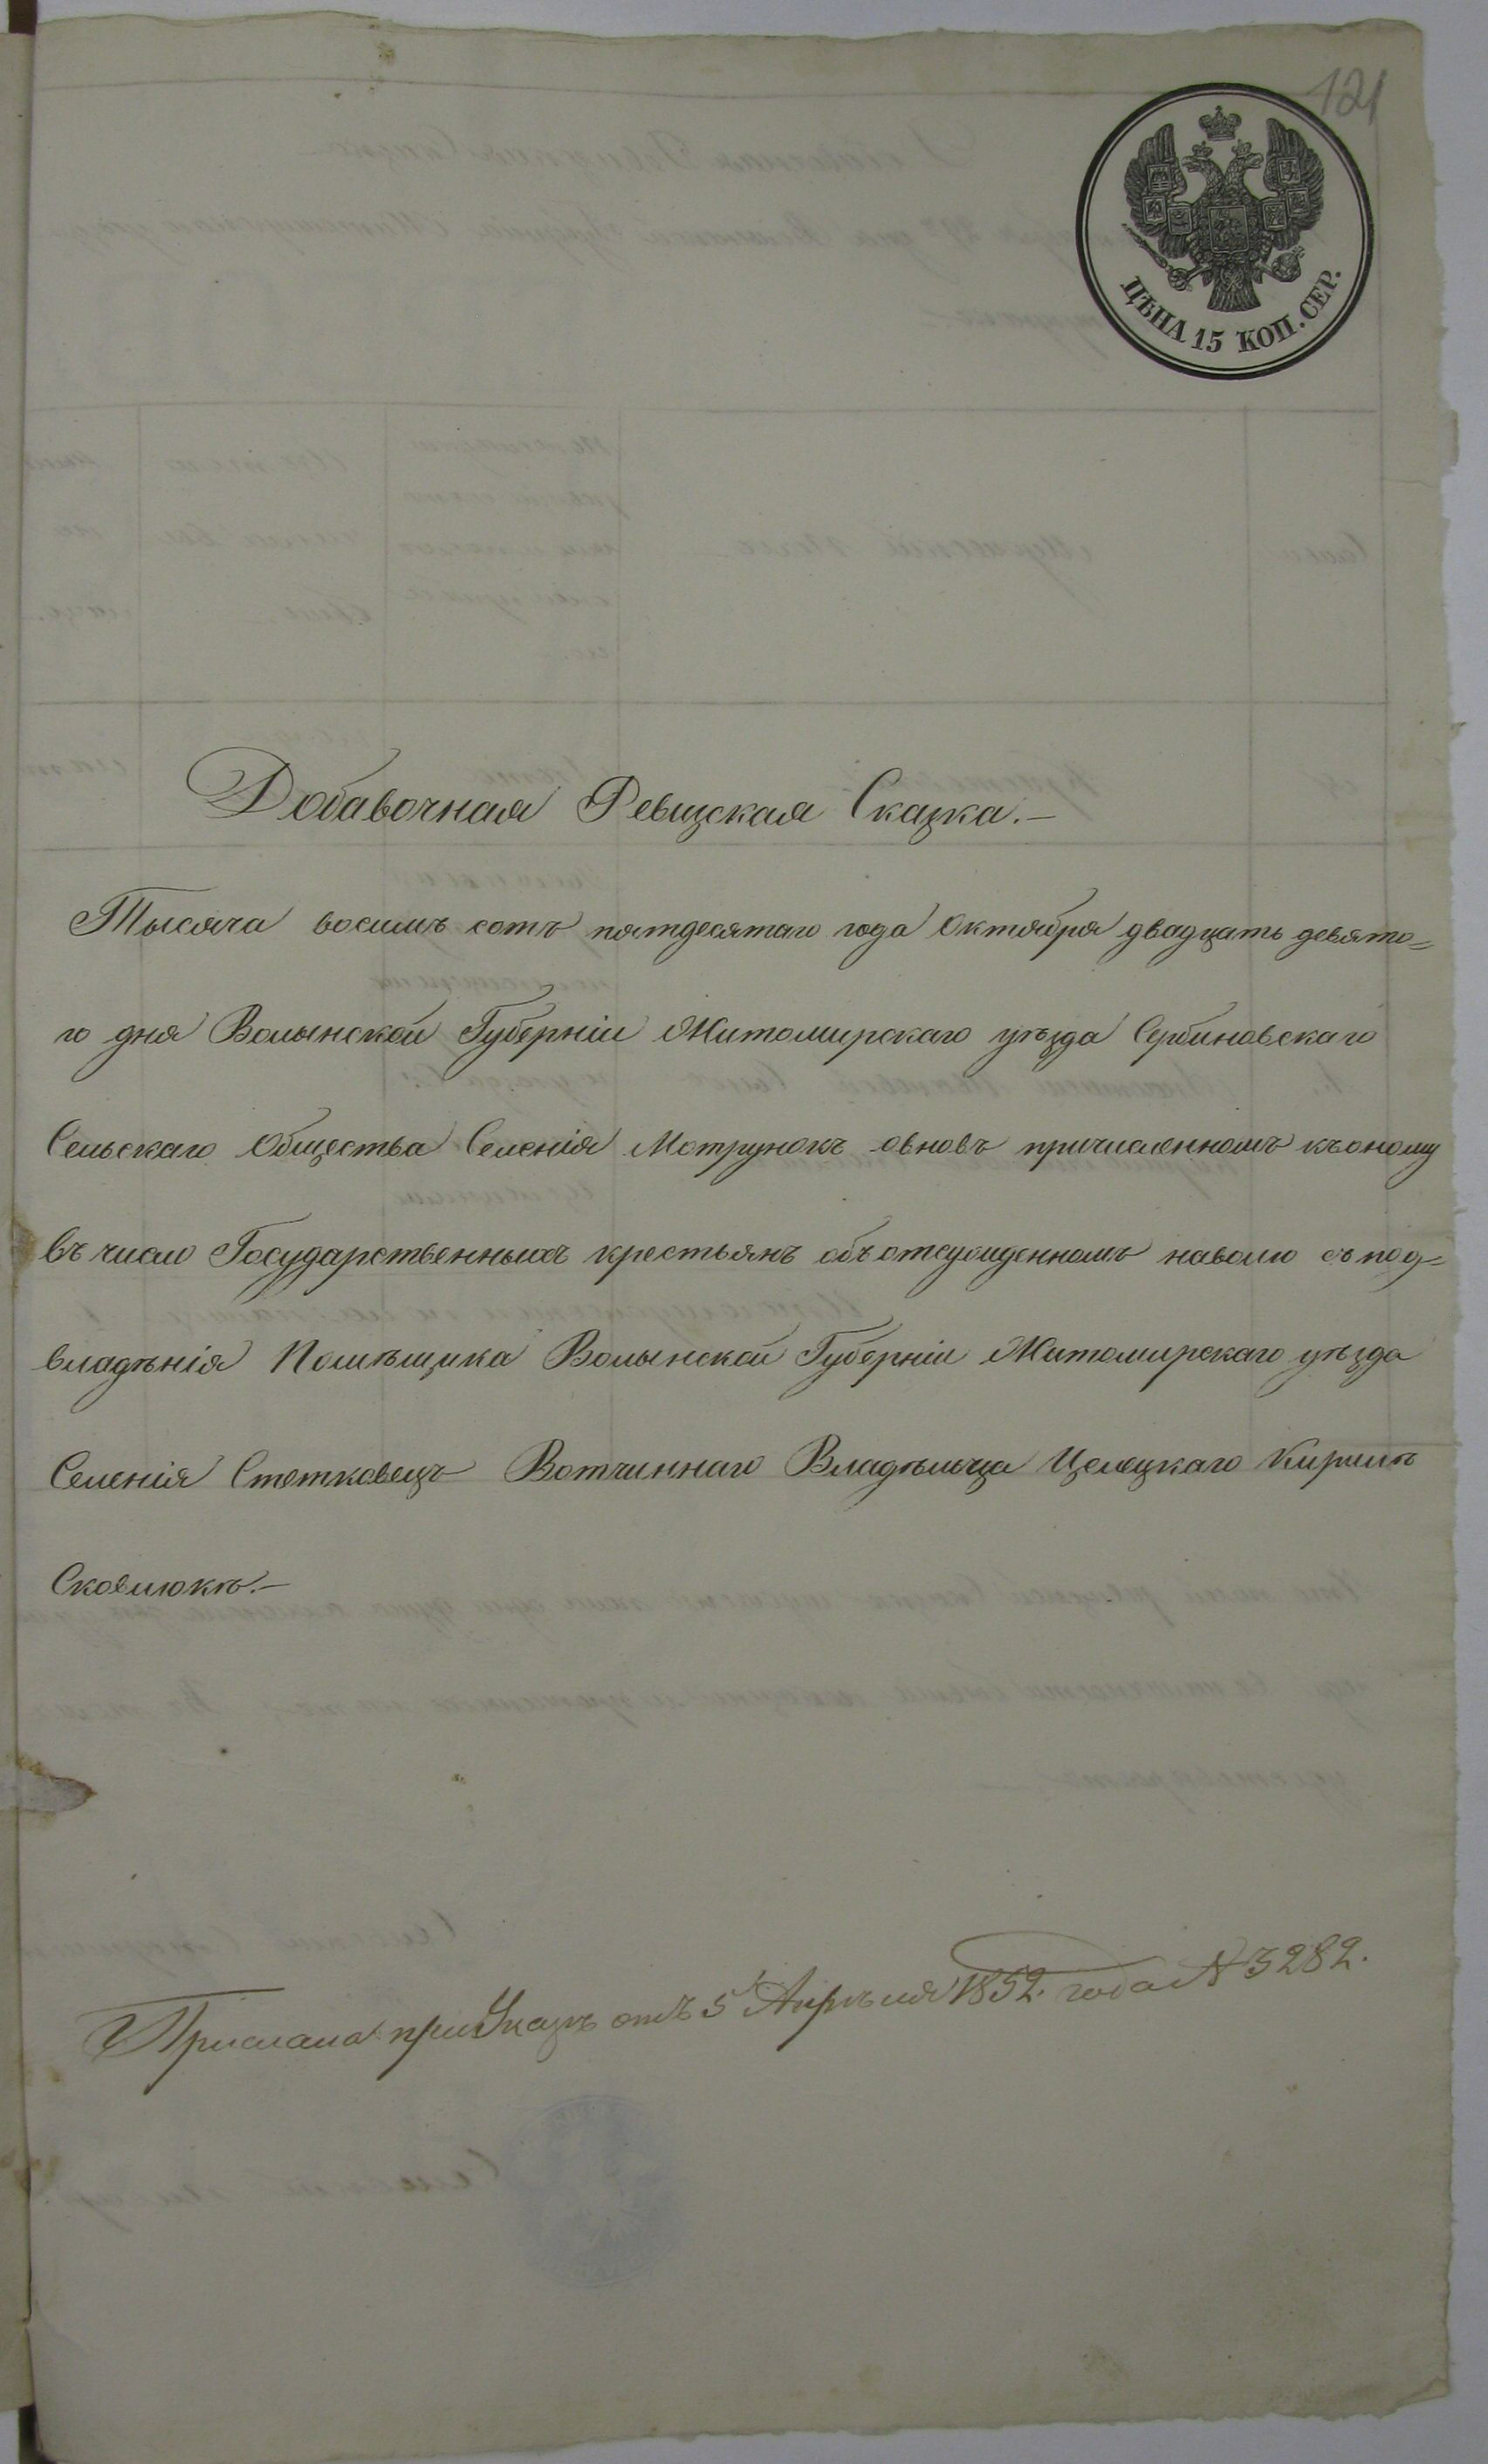 121
ЦѢНА 15 КОП. СЕР.
Добавочная Ревизская Сказка.—
Тысяча восимъ сотъ пятдесятаго года Октября двадцать девято=
го дня Волынской Губерніи Житомирскаго уѣзда Сербиновскаго
Сельскаго Общества Селенія Мотрунокъ овновъ причисленномъ къоному
въ число Государственныхъ крестьянъ объ отсужденномъ наволю съ под=
владѣнія Помѣщика Волынской Губерніи Житомирскаго уѣзда
Селенія Стетковецъ Вотчиннаго Владѣльца Целецкаго Кирилѣ
Сковлюкѣ.—
Прислана при Указѣ отъ 5 Апрѣля 1852 года № 3282.